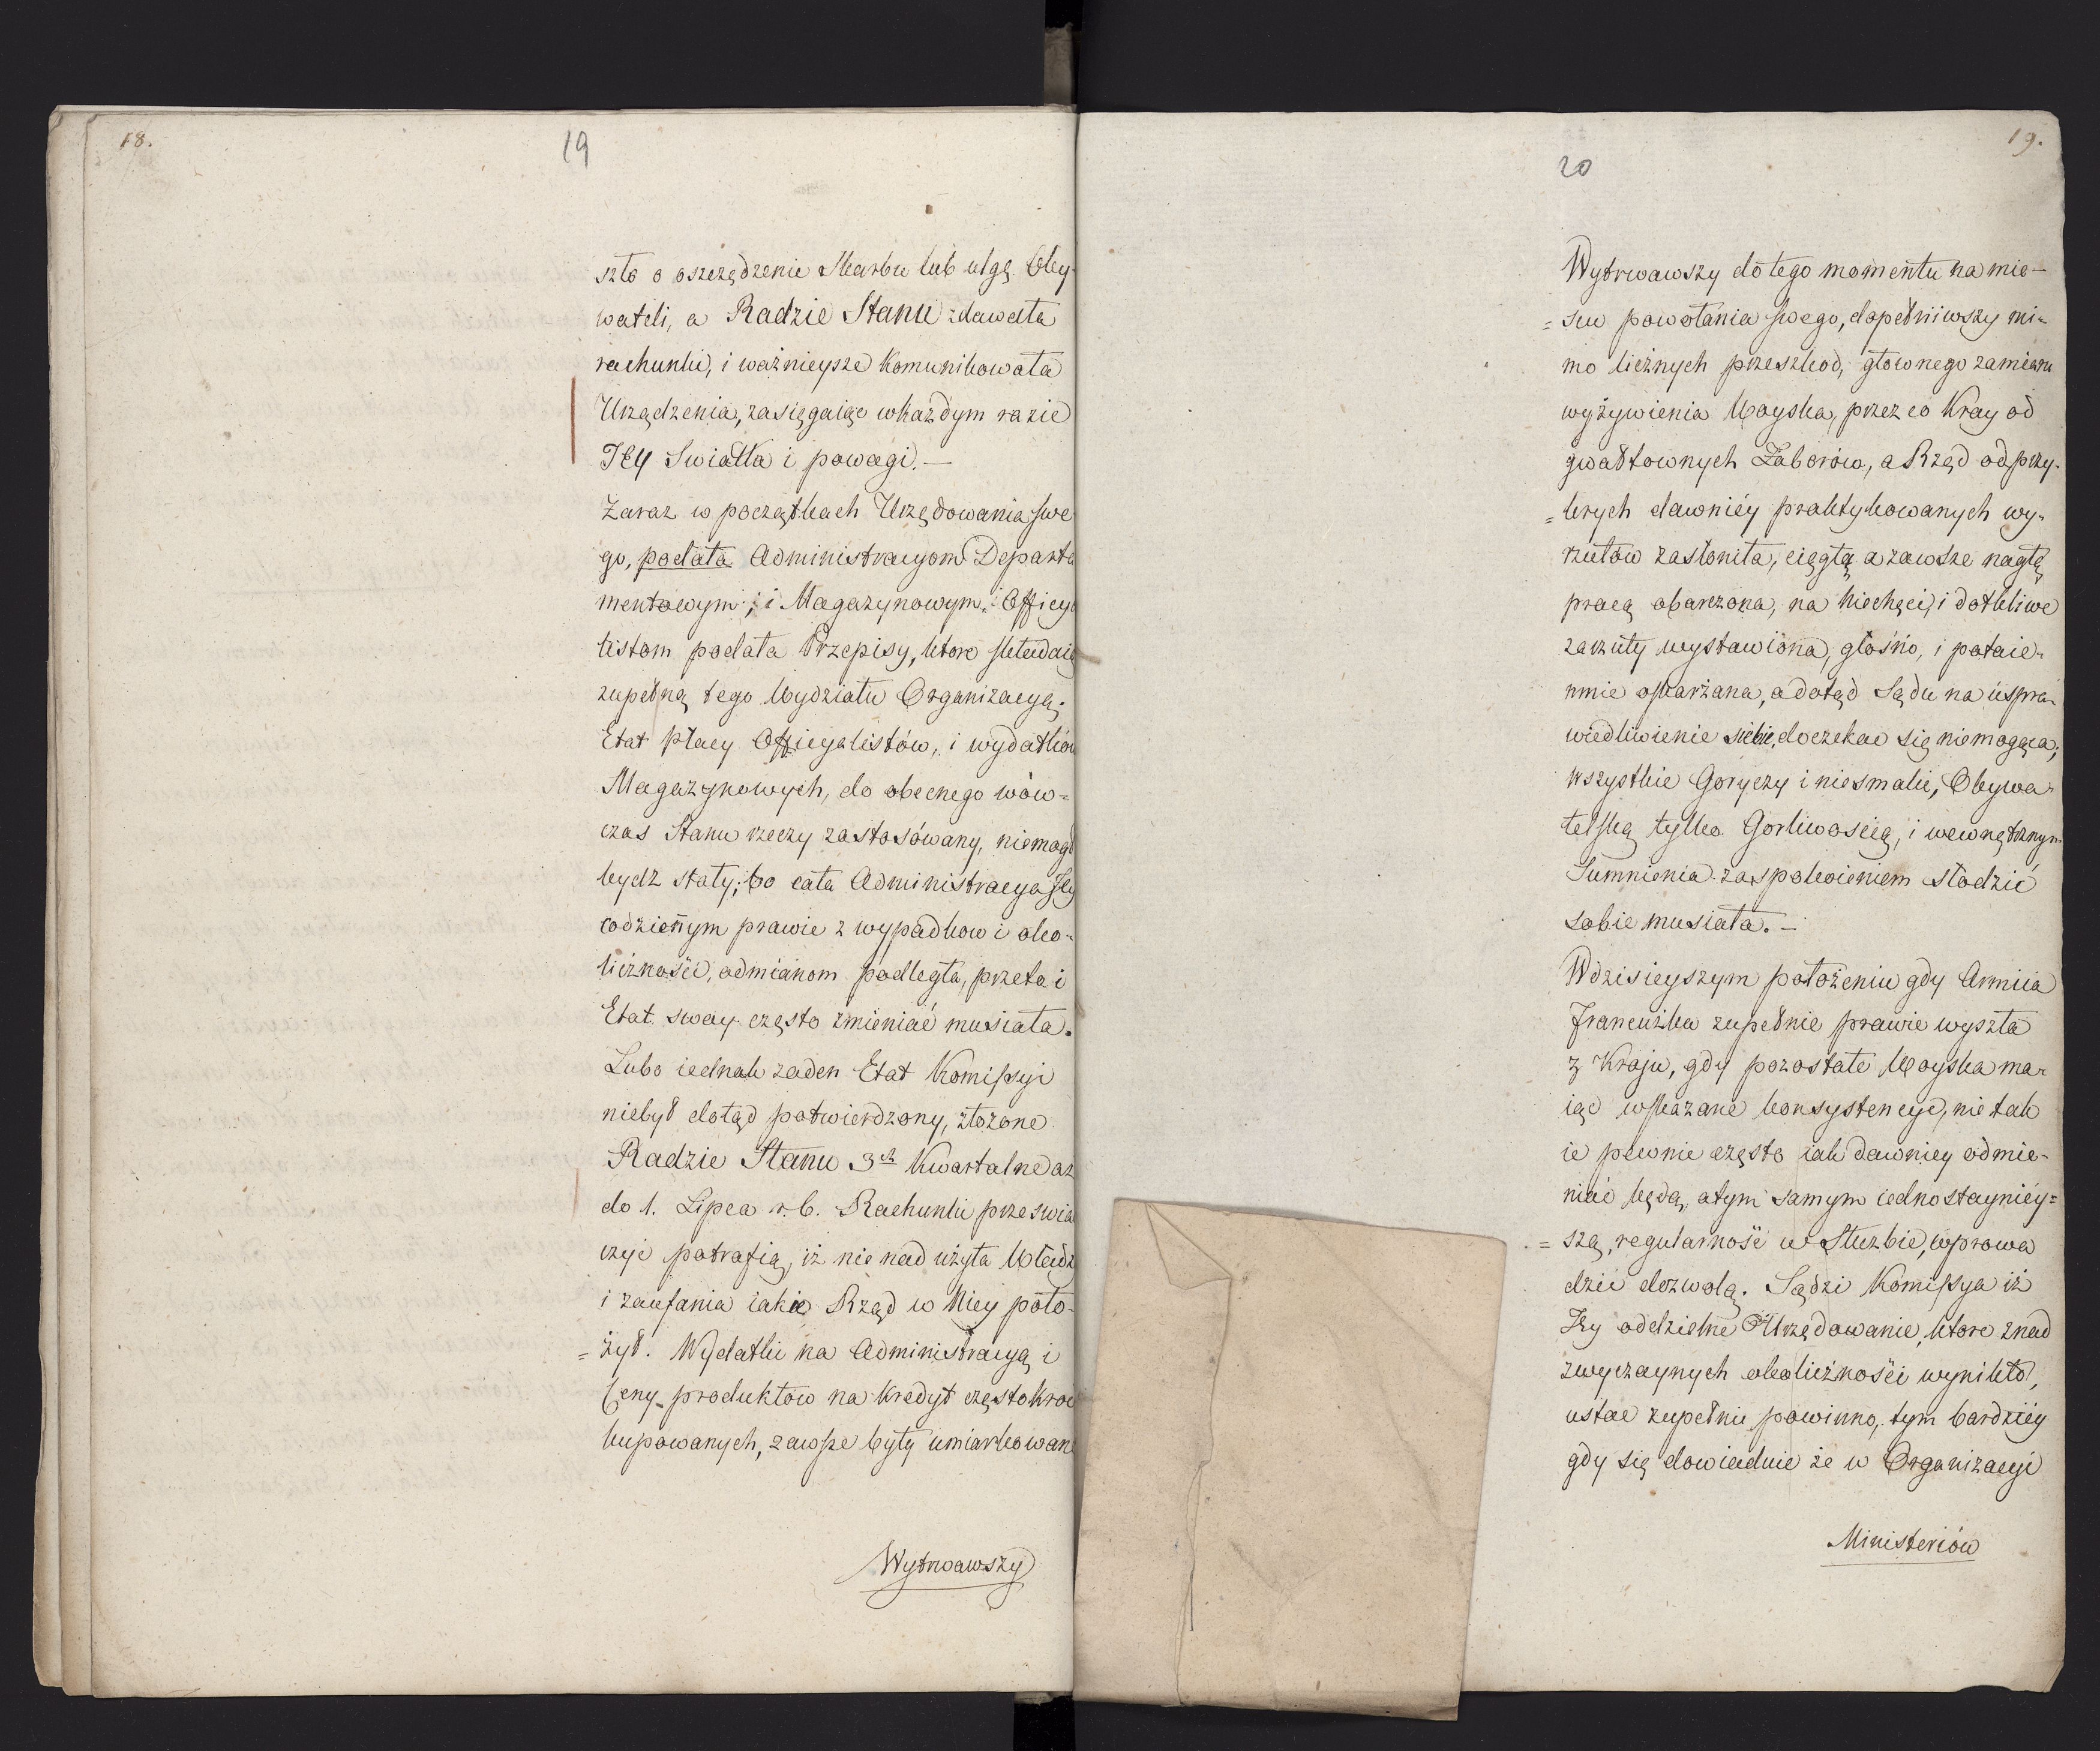 18.
19
szło o oszczędzenie Skarbu lub ulgę Oby-
wateli, a Radzie Stanu zdawała
rachunki, i ważnieysze komunikowała
Urządzenia, zasięgaiąc w każdym razie
Jey Swiatła i powagi. —
Zaraz w początkach Urzędowania swe
go, podała Administracyom Departa
mentowym; i Magazynowym, i Officya
listom podała Przepisy, ktore składaią
zupełną tego Wydziału Organizacyą;
Etat płacy Officyalistów, i wydatków
Magazynowych, do obecnego wów=
czas Stanu rzeczy zastosówany, niemogł
bydz stały; bo cała Administracya Jey
codzieñym prawie z wypadkow i oko=
liczności, odmianom podległa, przeto i
Etat swóy często zmieniać musiała.
Lubo iednak żaden Etat Komissyi
niebył dotąd potwierdzony, złożone
Radzie Stanu 3ch Kwartalne aż
do 1. Lipca r. b. Rachunki przeswia
czyć potrafią, iż nie nad użyta Władz
i zaufania iakie Rząd w Niey poło-
= żył. Wydatki na Administracyą i
Ceny produktow na kredyt częstokroć
kupowanych, zawsze były umiarkowane
Wytrwawszy
19.
20
Wytrwawszy do tego momentu na mie—
= scu powołania swego, dopełniwszy mi=
mo licznych przeszkod, głownego zamiaru
wyżywienia Woyska, przez co Kray od
gwałtownych Zaborów, a Rząd od przy-
= krych dawniéy praktykowanych wy-
rzutów zasłoniła, ciągłą a zawsze nagłą
pracą obarczona, na niechęci, i dotkliwe
zarzuty wystawiona, głośno, i potaie-
mnie oskarżana, a dotąd Sądu na uspra-
wiedliwienie siebie, doczekac się niemogąca;
wszystkie Goryczy i niesmaki, Obywa-
telską tylko Gorliwoscią, i wewnętrznym
Sumnienia zaspokoieniem słodzić
sobie musiała. —
W dzisieyszym położeniu gdy Armiia
Francuzka zupełnie prawie wyszła
z Kraju, gdy pozostałe Woyska ma-
iąc wskazane konsystencye, nie tak
ie pewnie często iak dawniey odmie-
niać będą, a tym samym iednostaynièy=
= szą, regularność w Służbie, wprowa
dzić dozwolą. Sądzi Komissya iż
Jey oddzielne Urzędowanie, ktore z nad
zwyczaynych okoliczności wynikło,
ustac zupełnie powinno, tym bardziéy
gdy się dowiaduie że w Organizacyi
Ministeriów